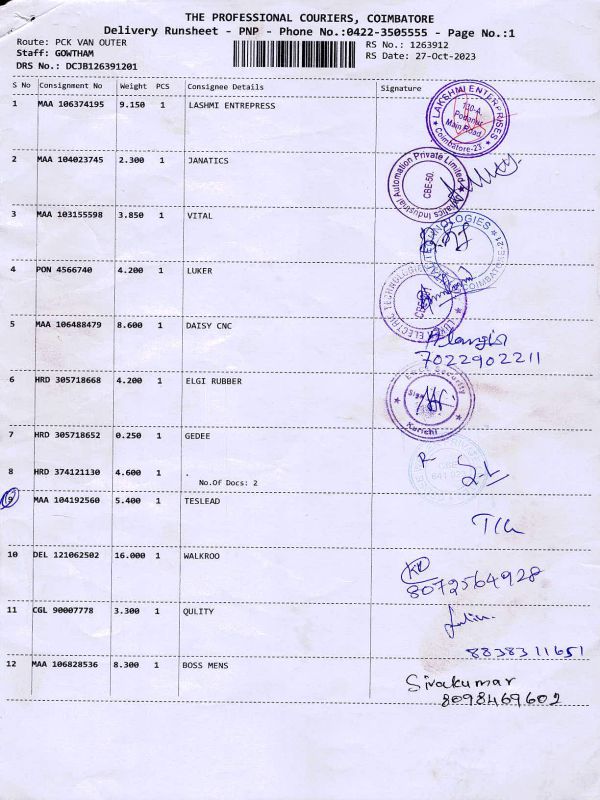 THE PROFESSIONAL COURIERS, COIMBATORE
Delivery Runsheet - PNP - Phone No.:0422-3505555 - Page No.:1
Route: PCK VAN OUTER
RS No.: 1263912
Staff: GOWTHAM
RS Date: 27-Oct-2023
DRS No.: DCJB126391201
S No Consignment No Weight PCS Consignee Details Signature
1 MAA 106374195 9.150 1 LASHMI ENTREPRESS
LAKSHMI ENTERPRISES
130-A,
Main Road,
Coimbatore-23.
2 MAA 104023745 2.300 1 JANATICS
Janatics Industrial Automation Private Limited
CBE-50.
3 MAA 103155598 3.850 1 VITAL
VITAL TECHNOLOGIES
COIMBATORE-21
4 PON 4566740 4.200 1 LUKER
ELECTRIC TECHNOLOGIES
5 MAA 106488479 8.600 1 DAISY CNC
7022902211
6 HRD 305718668 4.200 1 ELGI RUBBER
Security
Sign
Kurichi
7 HRD 305718652 0.250 1 GEDEE
8 HRD 374121130 4.600 1 .
No.Of Docs: 2
9 MAA 104192560 5.400 1 TESLEAD
10 DEL 121062502 16.000 1 WALKROO
8072564928
11 CGL 90007778 3.300 1 QULITY
8838311651
12 MAA 106828536 8.300 1 BOSS MENS
Sivakumar
8098469602